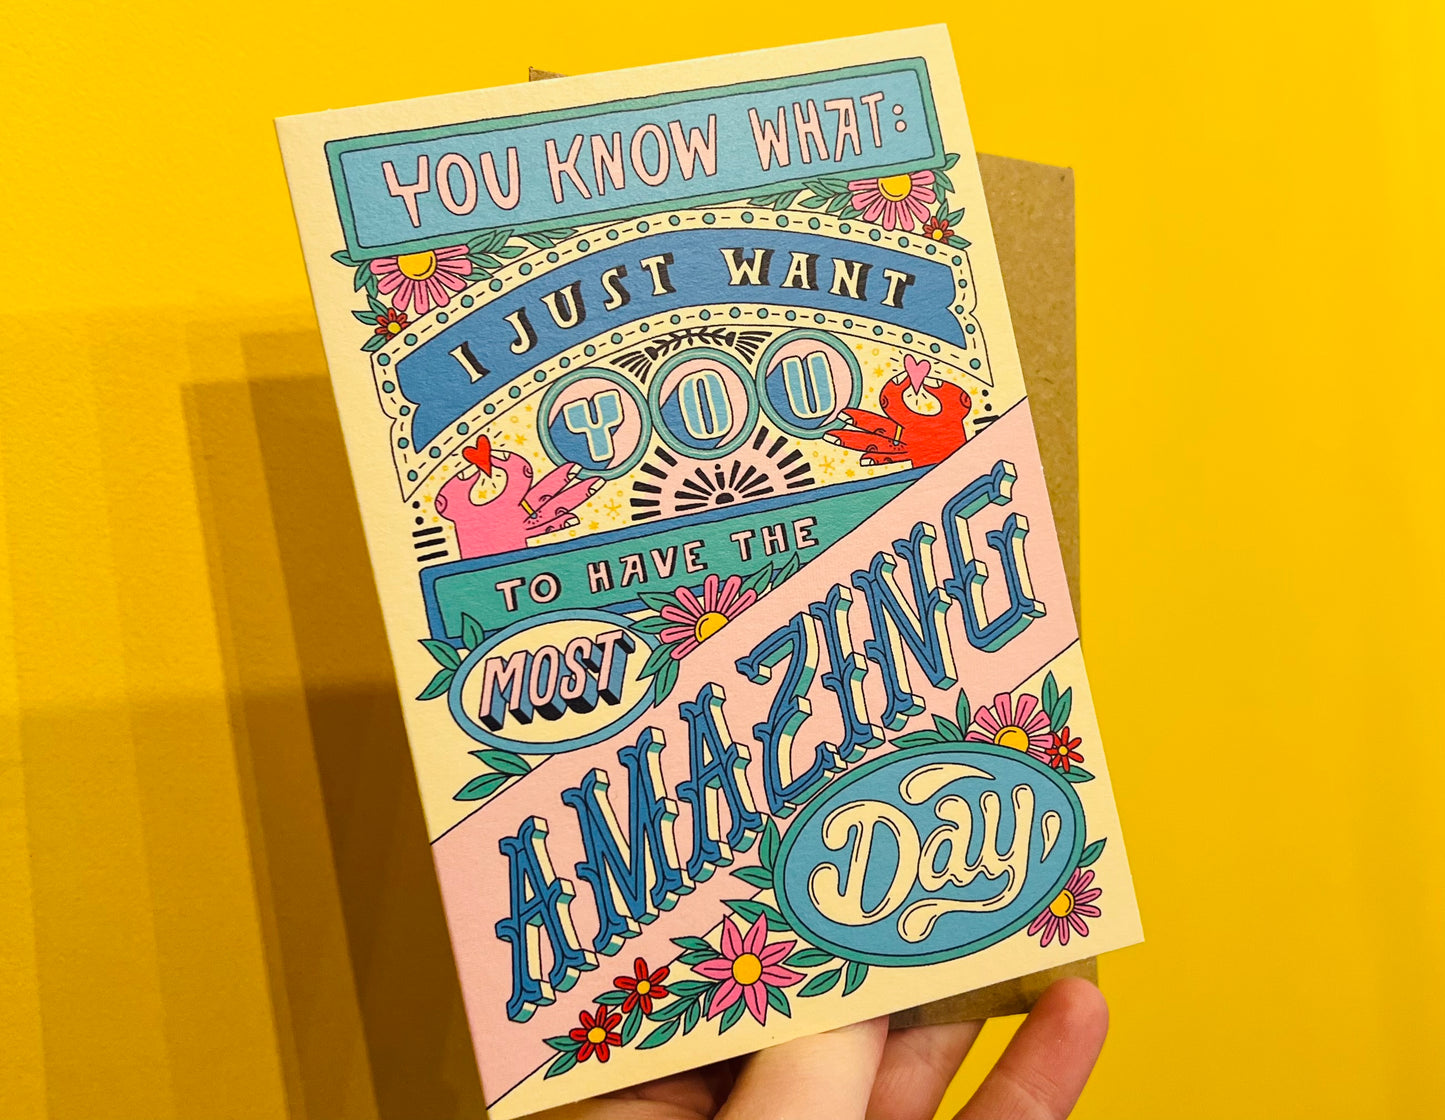 YOU KNOW WHAT:
I JUST WANT
YOU
TO HAVE THE
MOST
AMAZING
Day